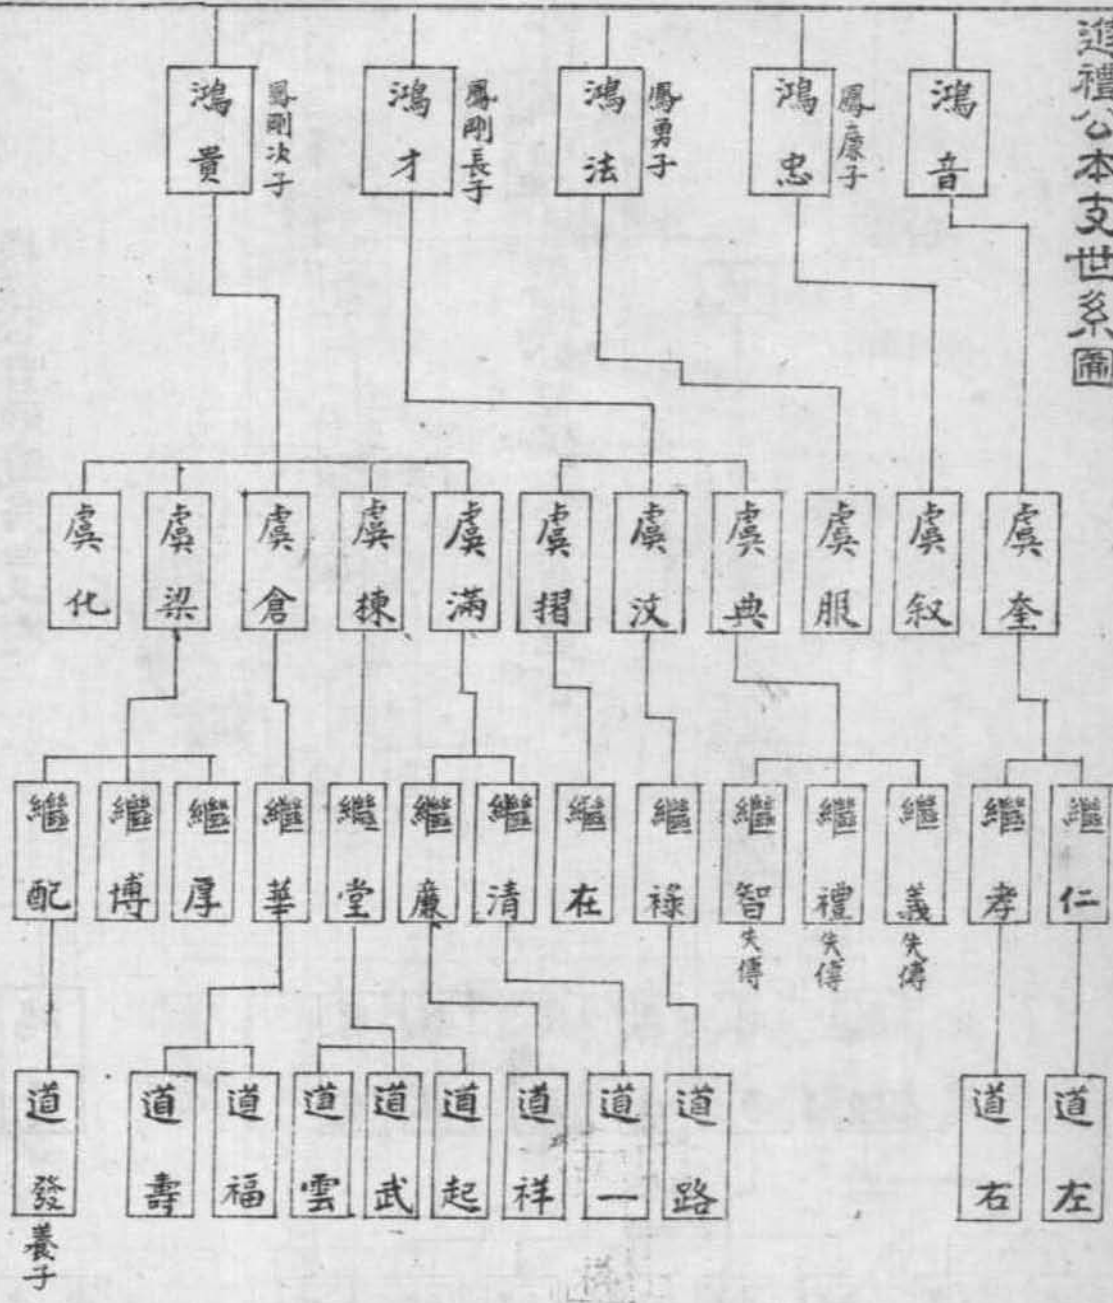 進禮公本支世系圖
鴻音
鴻忠
鳳廉子
鴻法
鳳勇子
鴻才
鳳剛長子
鴻貴
鳳剛次子
虞奎
虞叙
虞服
虞典
虞汶
虞摺
虞滿
虞棟
虞倉
虞梁
虞化
繼仁
繼孝
繼義
失傳
繼禮
失傳
繼智
失傳
繼祿
繼在
繼清
繼廉
繼堂
繼華
繼厚
繼博
繼配
道左
道右
道路
道一
道祥
道起
道武
道雲
道福
道壽
道發
養子